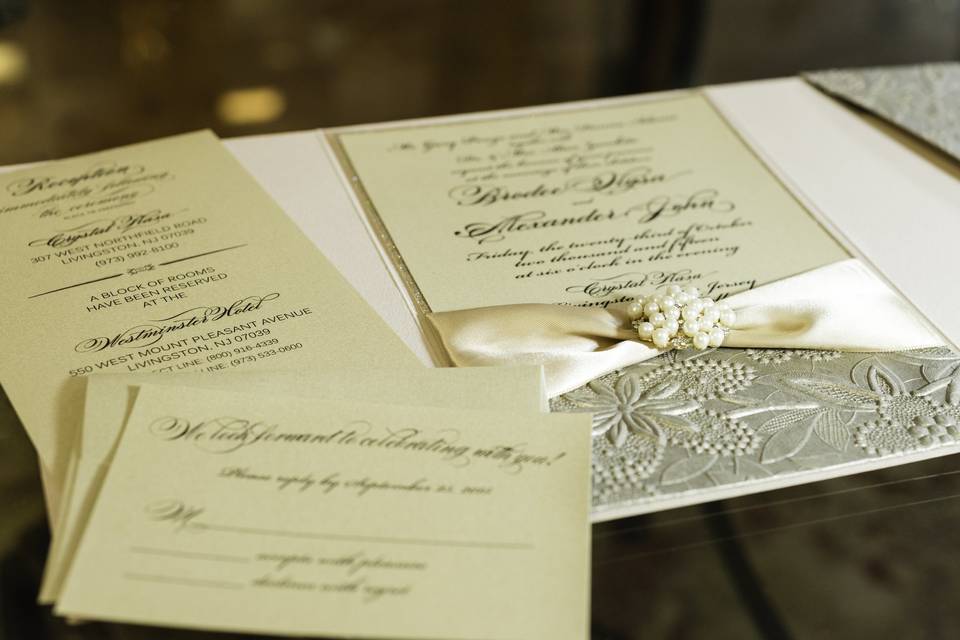 Reception
immediately following
the ceremony
Crystal Plaza
307 WEST NORTHFIELD ROAD
LIVINGSTON, NJ 07039
(973) 992-8100
A BLOCK OF ROOMS
HAVE BEEN RESERVED
AT THE
Westminster Hotel
550 WEST MOUNT PLEASANT AVENUE
LIVINGSTON, NJ 07039
LINE: (800) 916-4339
LINE: (973) 533-0600
and
Alexander John
Friday the twenty third of October
two thousand and fifteen
at six o'clock in the evening
Crystal Plaza
Livingston, New Jersey
We look forward to celebrating with you!
Please reply by September 25, 2015
M
accepts with pleasure
declines with regret